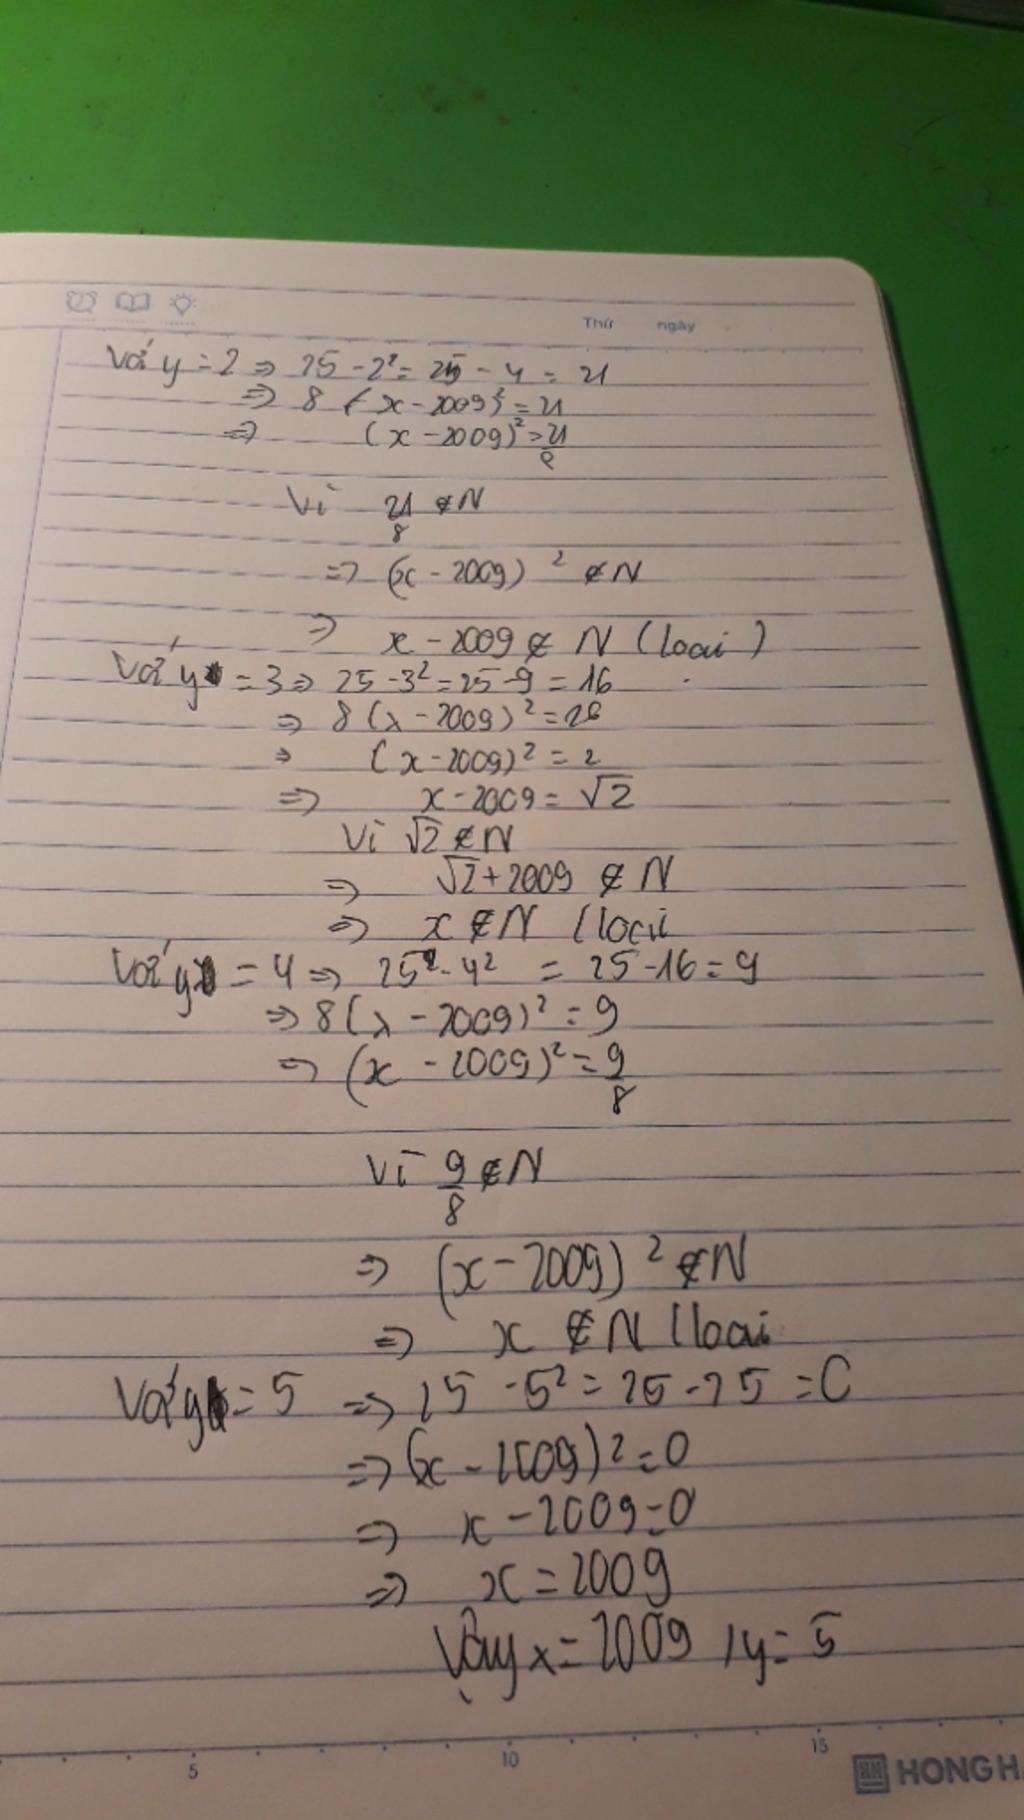 Thứ ngày
Với y = 2 => 25 - 2² = 25 - 4 = 21
=> 8 (x - 2009)² = 21
=> (x - 2009)² = 21/8
Vì 21/8 ∉ N
=> (x - 2009)² ∉ N
=> x - 2009 ∉ N (loại)
Với y = 3 => 25 - 3² = 25 - 9 = 16
=> 8 (x - 2009)² = 16
=> (x - 2009)² = 2
=> x - 2009 = √2
Vì √2 ∉ N
=> √2 + 2009 ∉ N
=> x ∉ N (loại
Với y = 4 => 25 - 4² = 25 - 16 = 9
=> 8 (x - 2009)² = 9
=> (x - 2009)² = 9/8
Vì 9/8 ∉ N
=> (x - 2009)² ∉ N
=> x ∉ N (loại
Với y = 5 => 25 - 5² = 25 - 25 = 0
=> (x - 2009)² = 0
=> x - 2009 = 0
=> x = 2009
Vậy x = 2009 , y = 5
5 10 15
HONG H